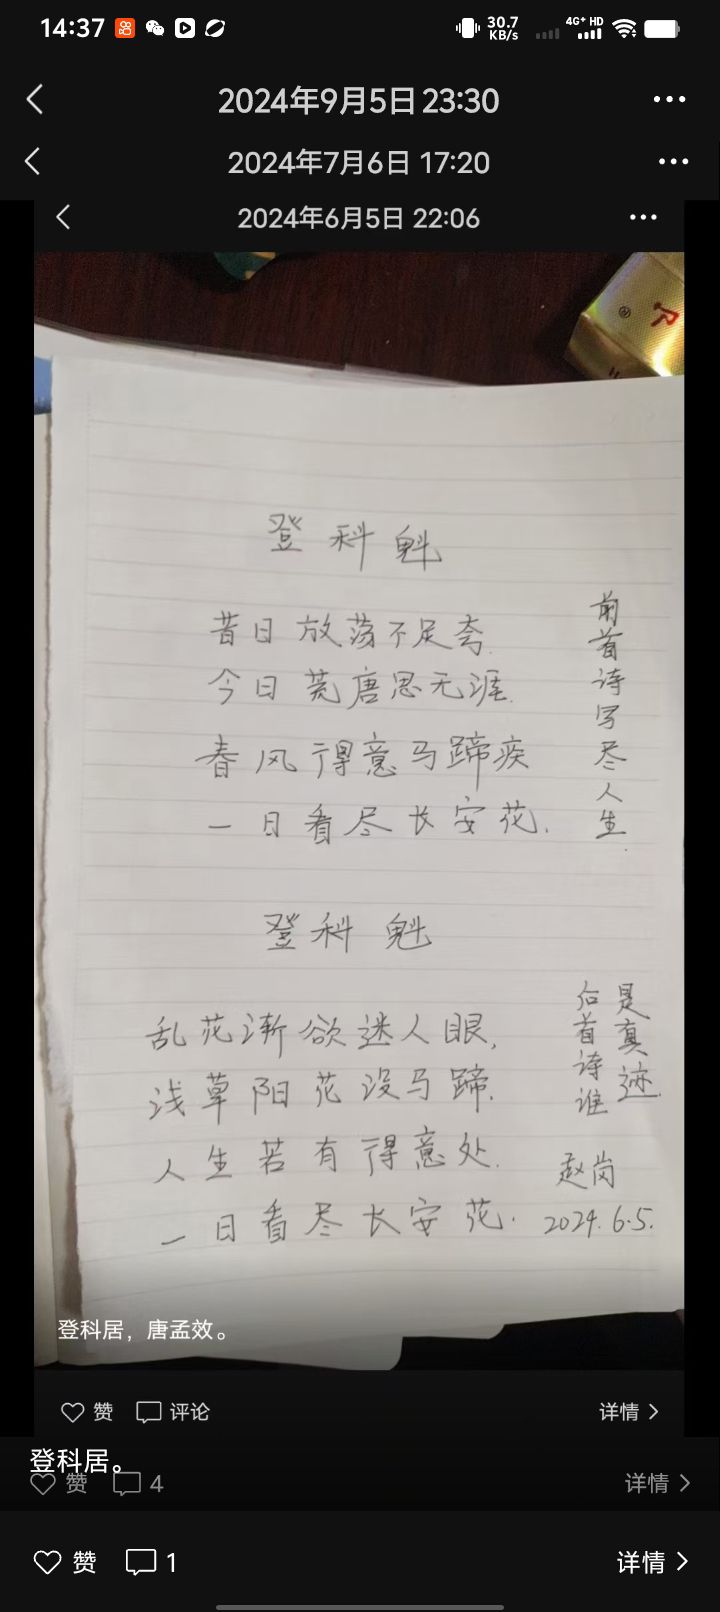 14:37
30.7
KB/s
4G+ HD
2024年9月5日 23:30
2024年7月6日 17:20
2024年6月5日 22:06
R
登科魁
昔日放荡不足夸.
今日荒唐思无涯.
春风得意马蹄疾
一日看尽长安花.
前首诗写尽人生.
登科魁
乱花渐欲迷人眼,
浅草阳花没马蹄.
人生若有得意处.
一日看尽长安花.
后首诗谁
是真迹.
赵岗
2024.6.5.
登科居，唐孟效。
赞
评论
详情
登科居。
赞
4
详情
赞
1
详情